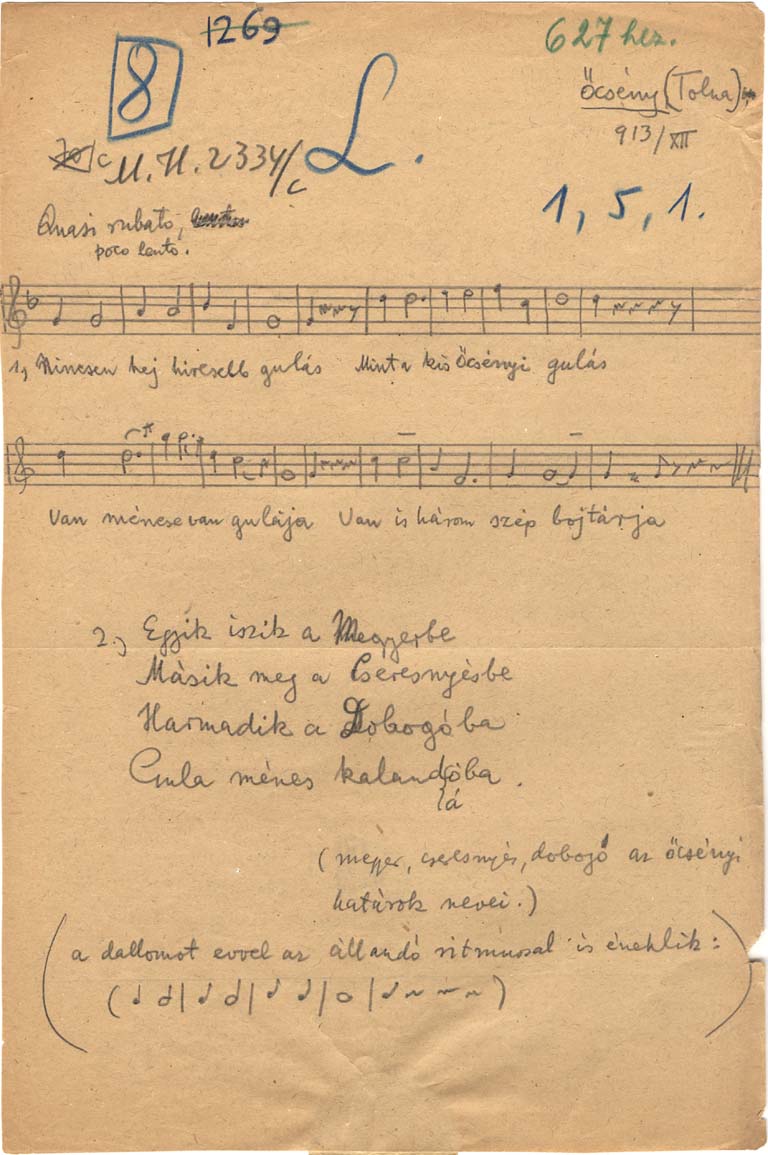 1269
627 hez.
8
Őcsény (Tolna)
913/XII
M.H. 2334/c
L.
1, 5, 1.
Quasi rubato,
poco lento.
1, Nincsen hej hiresebb gulás Mint a kis őcsényi gulás
Van ménese van gulája Van is három szép bojtárja
2.) Egyik iszik a Megyerbe
Másik meg a Cseresnyésbe
Harmadik a Dobogóba
Gula ménes kalandóba.
lá
(megyer, cseresnyés, dobogó az őcsényi
határok nevei.)
a dallomot evvel az állandó ritmussal is éneklik: